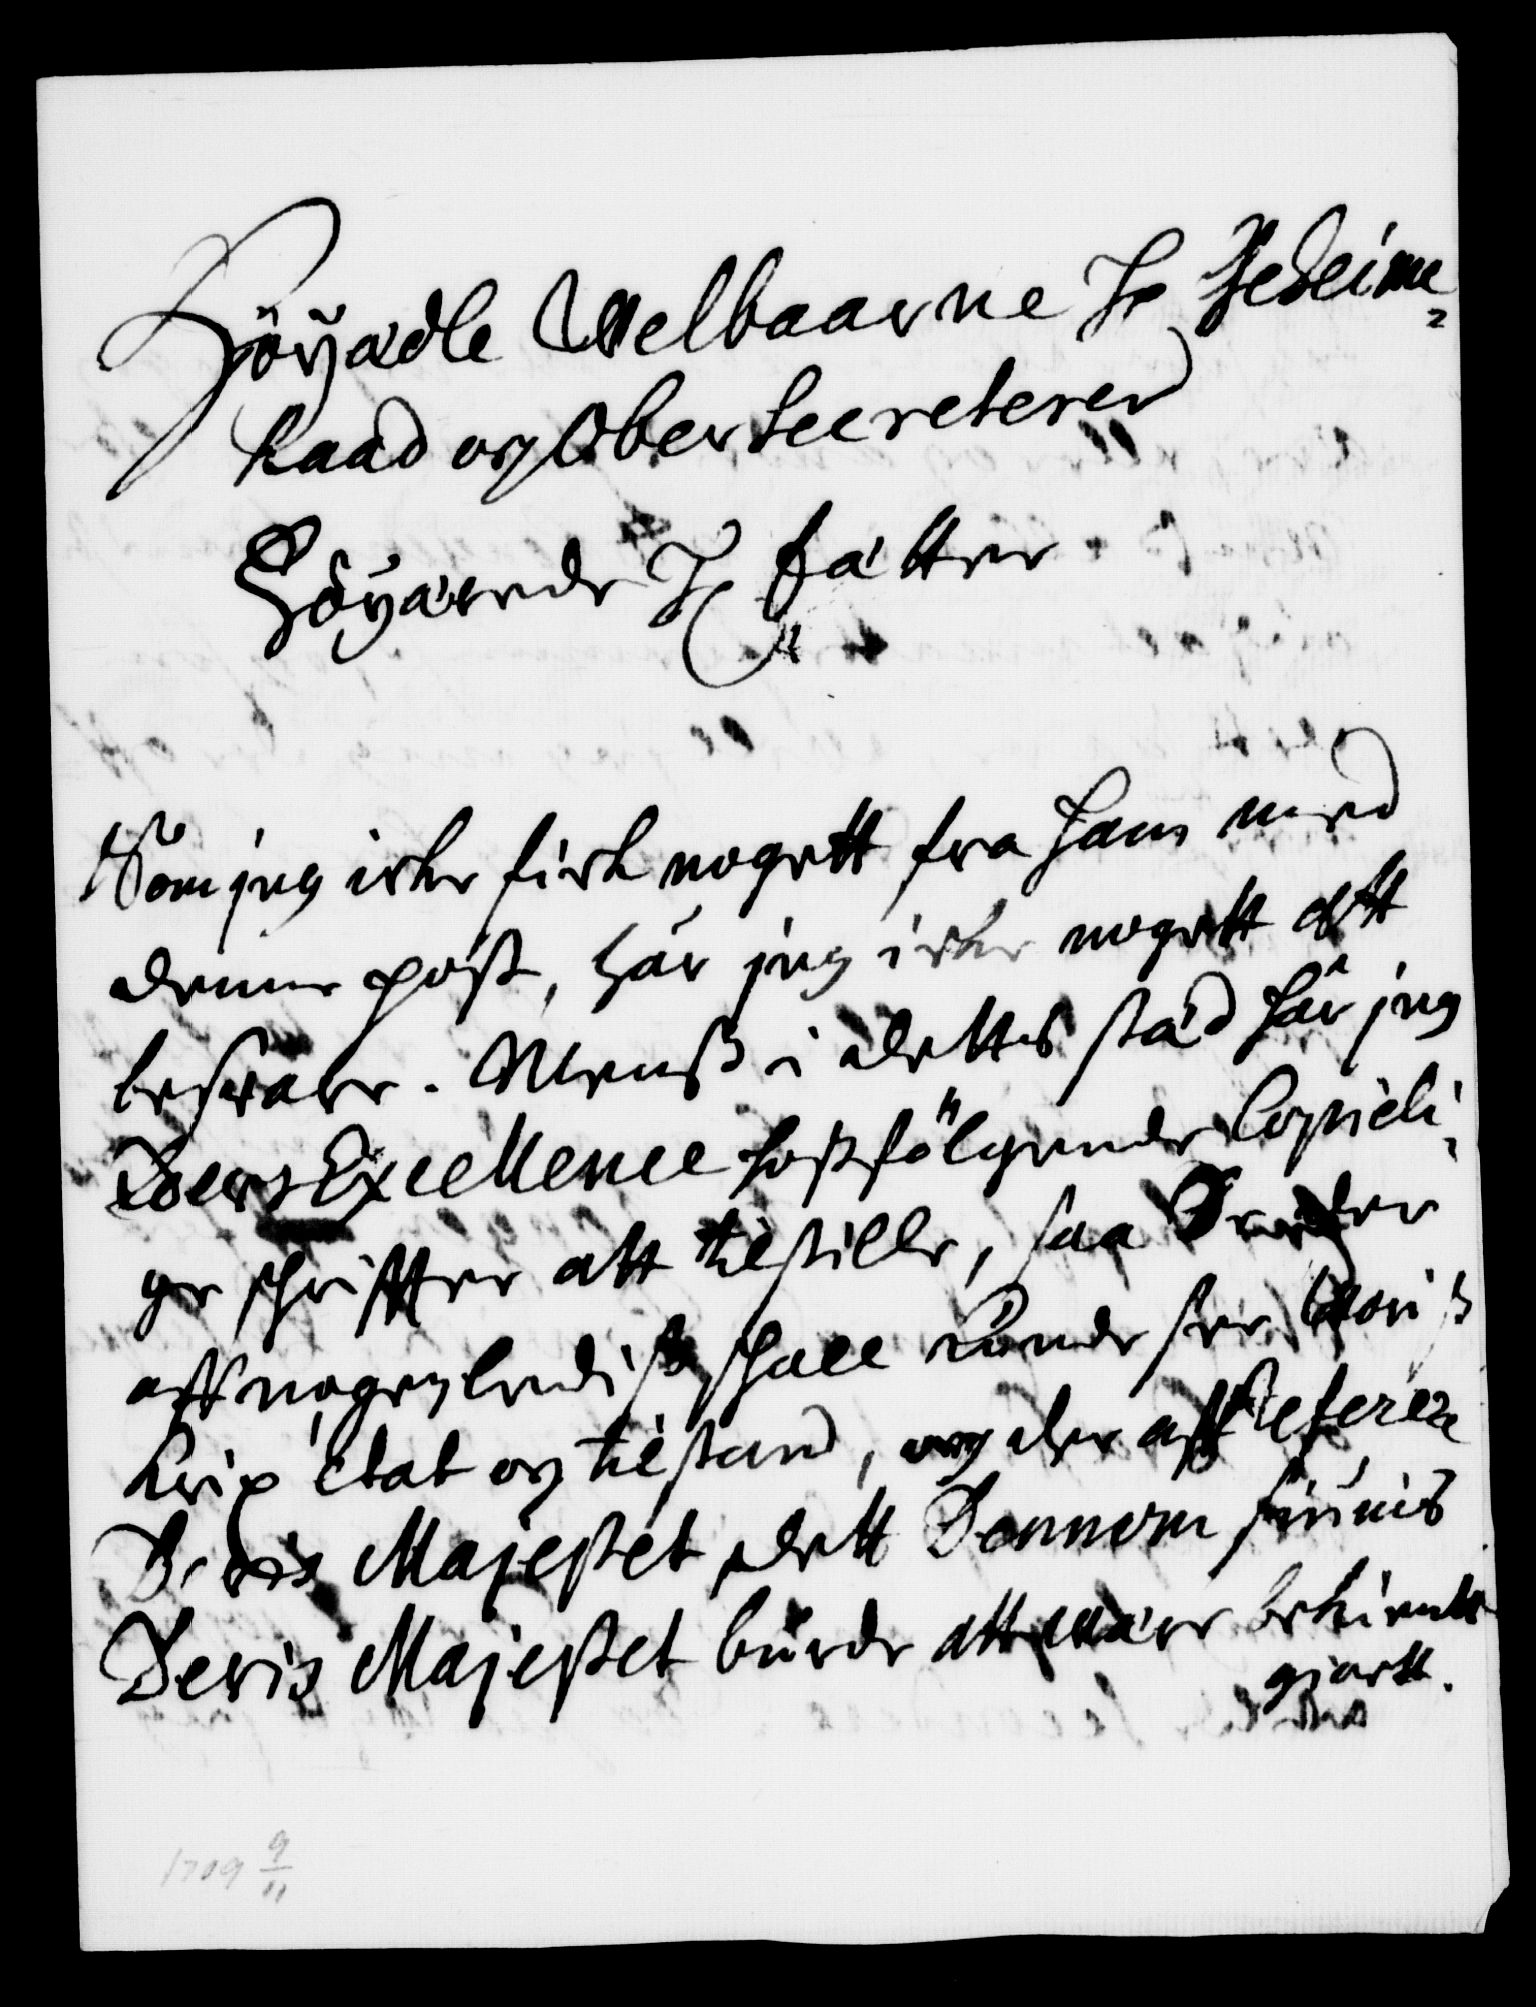 Höyädle Welbaarne Hr Geheime-
Raad og Ober Secreterer
Höyärede Hr fätter
Som jeg icke fick nogett fra ham med
denne post, har jeg icke nogett att
besvare. Menß i dettes städ har jeg
Deris Excellence hoßfölgende Copieli-
ge schrifter att tilstille, saa
aff nogenledis schall kunde see woriß
Krigs etat og tilstand, og der aff referere
Deris Majestet, dett Dennem siunis
Deris Majestet burde att wäre bekiente
giortt.
1709 9/11